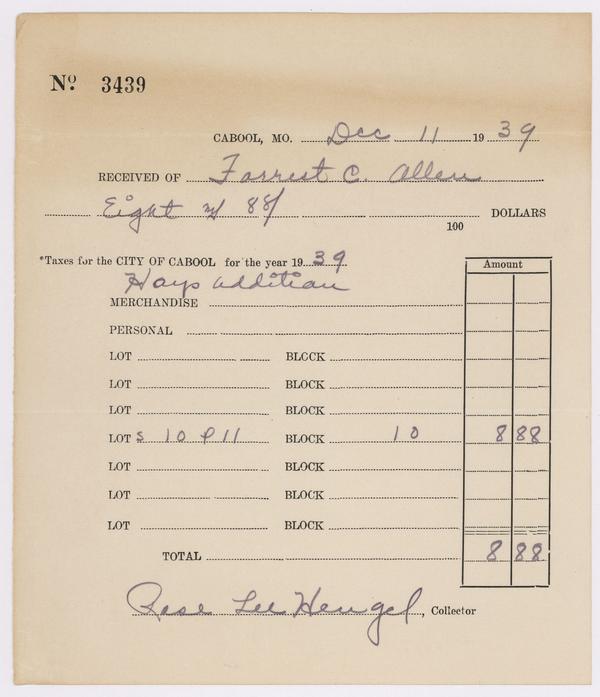 Nº 3439
CABOOL, MO. Dec 11 1939
RECEIVED OF Forrest C. Allen
Eight & 88/100 DOLLARS
*Taxes for the CITY OF CABOOL for the year 1939
Hays addition
Amount
MERCHANDISE
PERSONAL
LOT BLOCK
LOT BLOCK
LOT BLOCK
LOTs 10 & 11 BLOCK 10 8 88
LOT BLOCK
LOT BLOCK
LOT BLOCK
TOTAL 8 88
Rose Lee Hengel, Collector